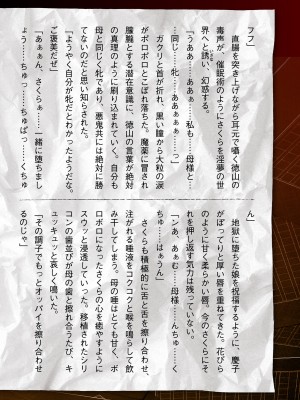 フフ」
　直腸を突き上げながら耳元で囁く徳山の
毒声が、催眠術のようにさくらを淫夢の世
界へと誘い、幻惑する。
「うああ……ああぁ……私も……母様と…
…同じ……牝……ああぁぁぁ……っ」
　ガクリと首が折れ、黒い瞳から大粒の涙
がポロポロとこぼれ落ちた。魔薬に冒され
朦朧とする潜在意識に、徳山の言葉が絶対
の真理のように刷り込まれていく。自分も
母と同じく牝であり、悪鬼共には絶対に勝
てないのだと思い知らされた。
「ようやく自分が牝だとわかったようだな。
ご褒美だぜ」
「あぁぁん、さくらぁ……一緒に堕ちまし
ょう……ちゅっ……ちゅぱっ……くちゅ
ん」
　地獄に堕ちた娘を祝福するように、慶子
がぽってりと厚い唇を重ねてきた。花びら
のように甘く柔らかい唇。今のさくらにそ
れを押し返す気力は残っていない。
「ンあ、あぁむ……母様……んちゅ……く
ちゅ……はぁうん」
　さくらも積極的に舌と舌を擦り合わせ、
注がれる唾液をコクコクと喉を鳴らして飲
み干してしまう。母の唾はとても甘く、ボ
ロボロになったさくらの心を癒やすように
スウッと浸透していった。移植されたシリ
コンの歯並びが母の歯と擦れ合うたび、キ
ュッキュッと哀しく鳴いた。
「その調子でもっとオッパイを擦り合わせ
るのじゃ」